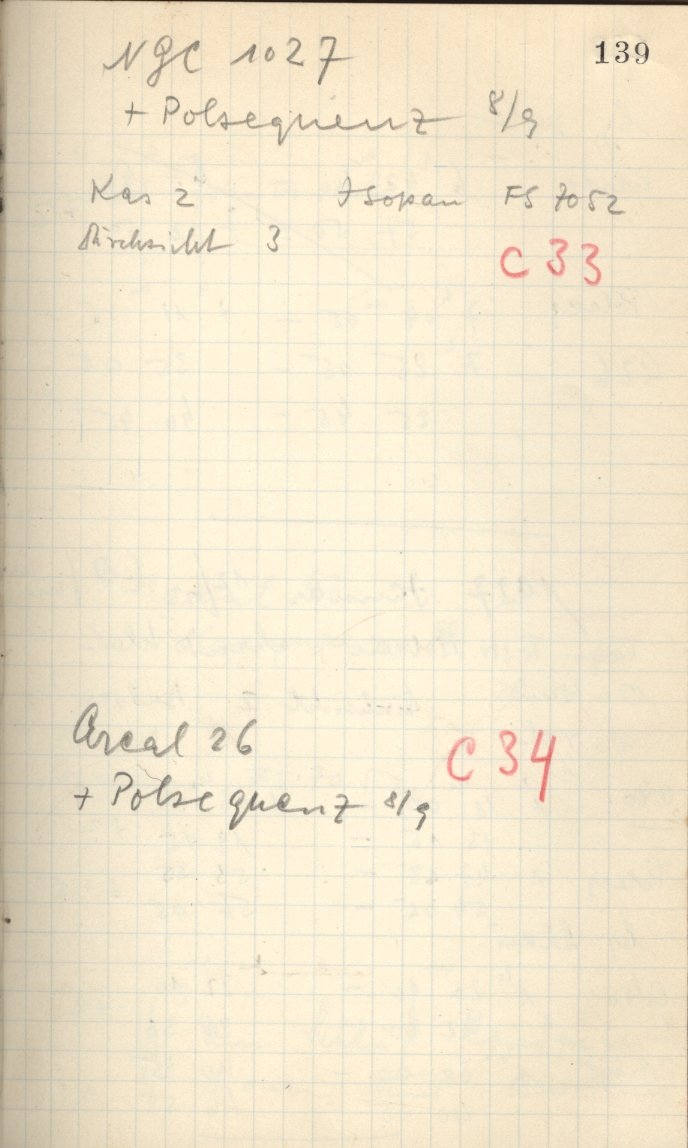 139
NGC 1027
+ Polsequenz 8/9
Kas 2 Isopan FS 7052
Durchsicht 3
C 33
Areal 26
C 34
+ Polsequenz 8/9